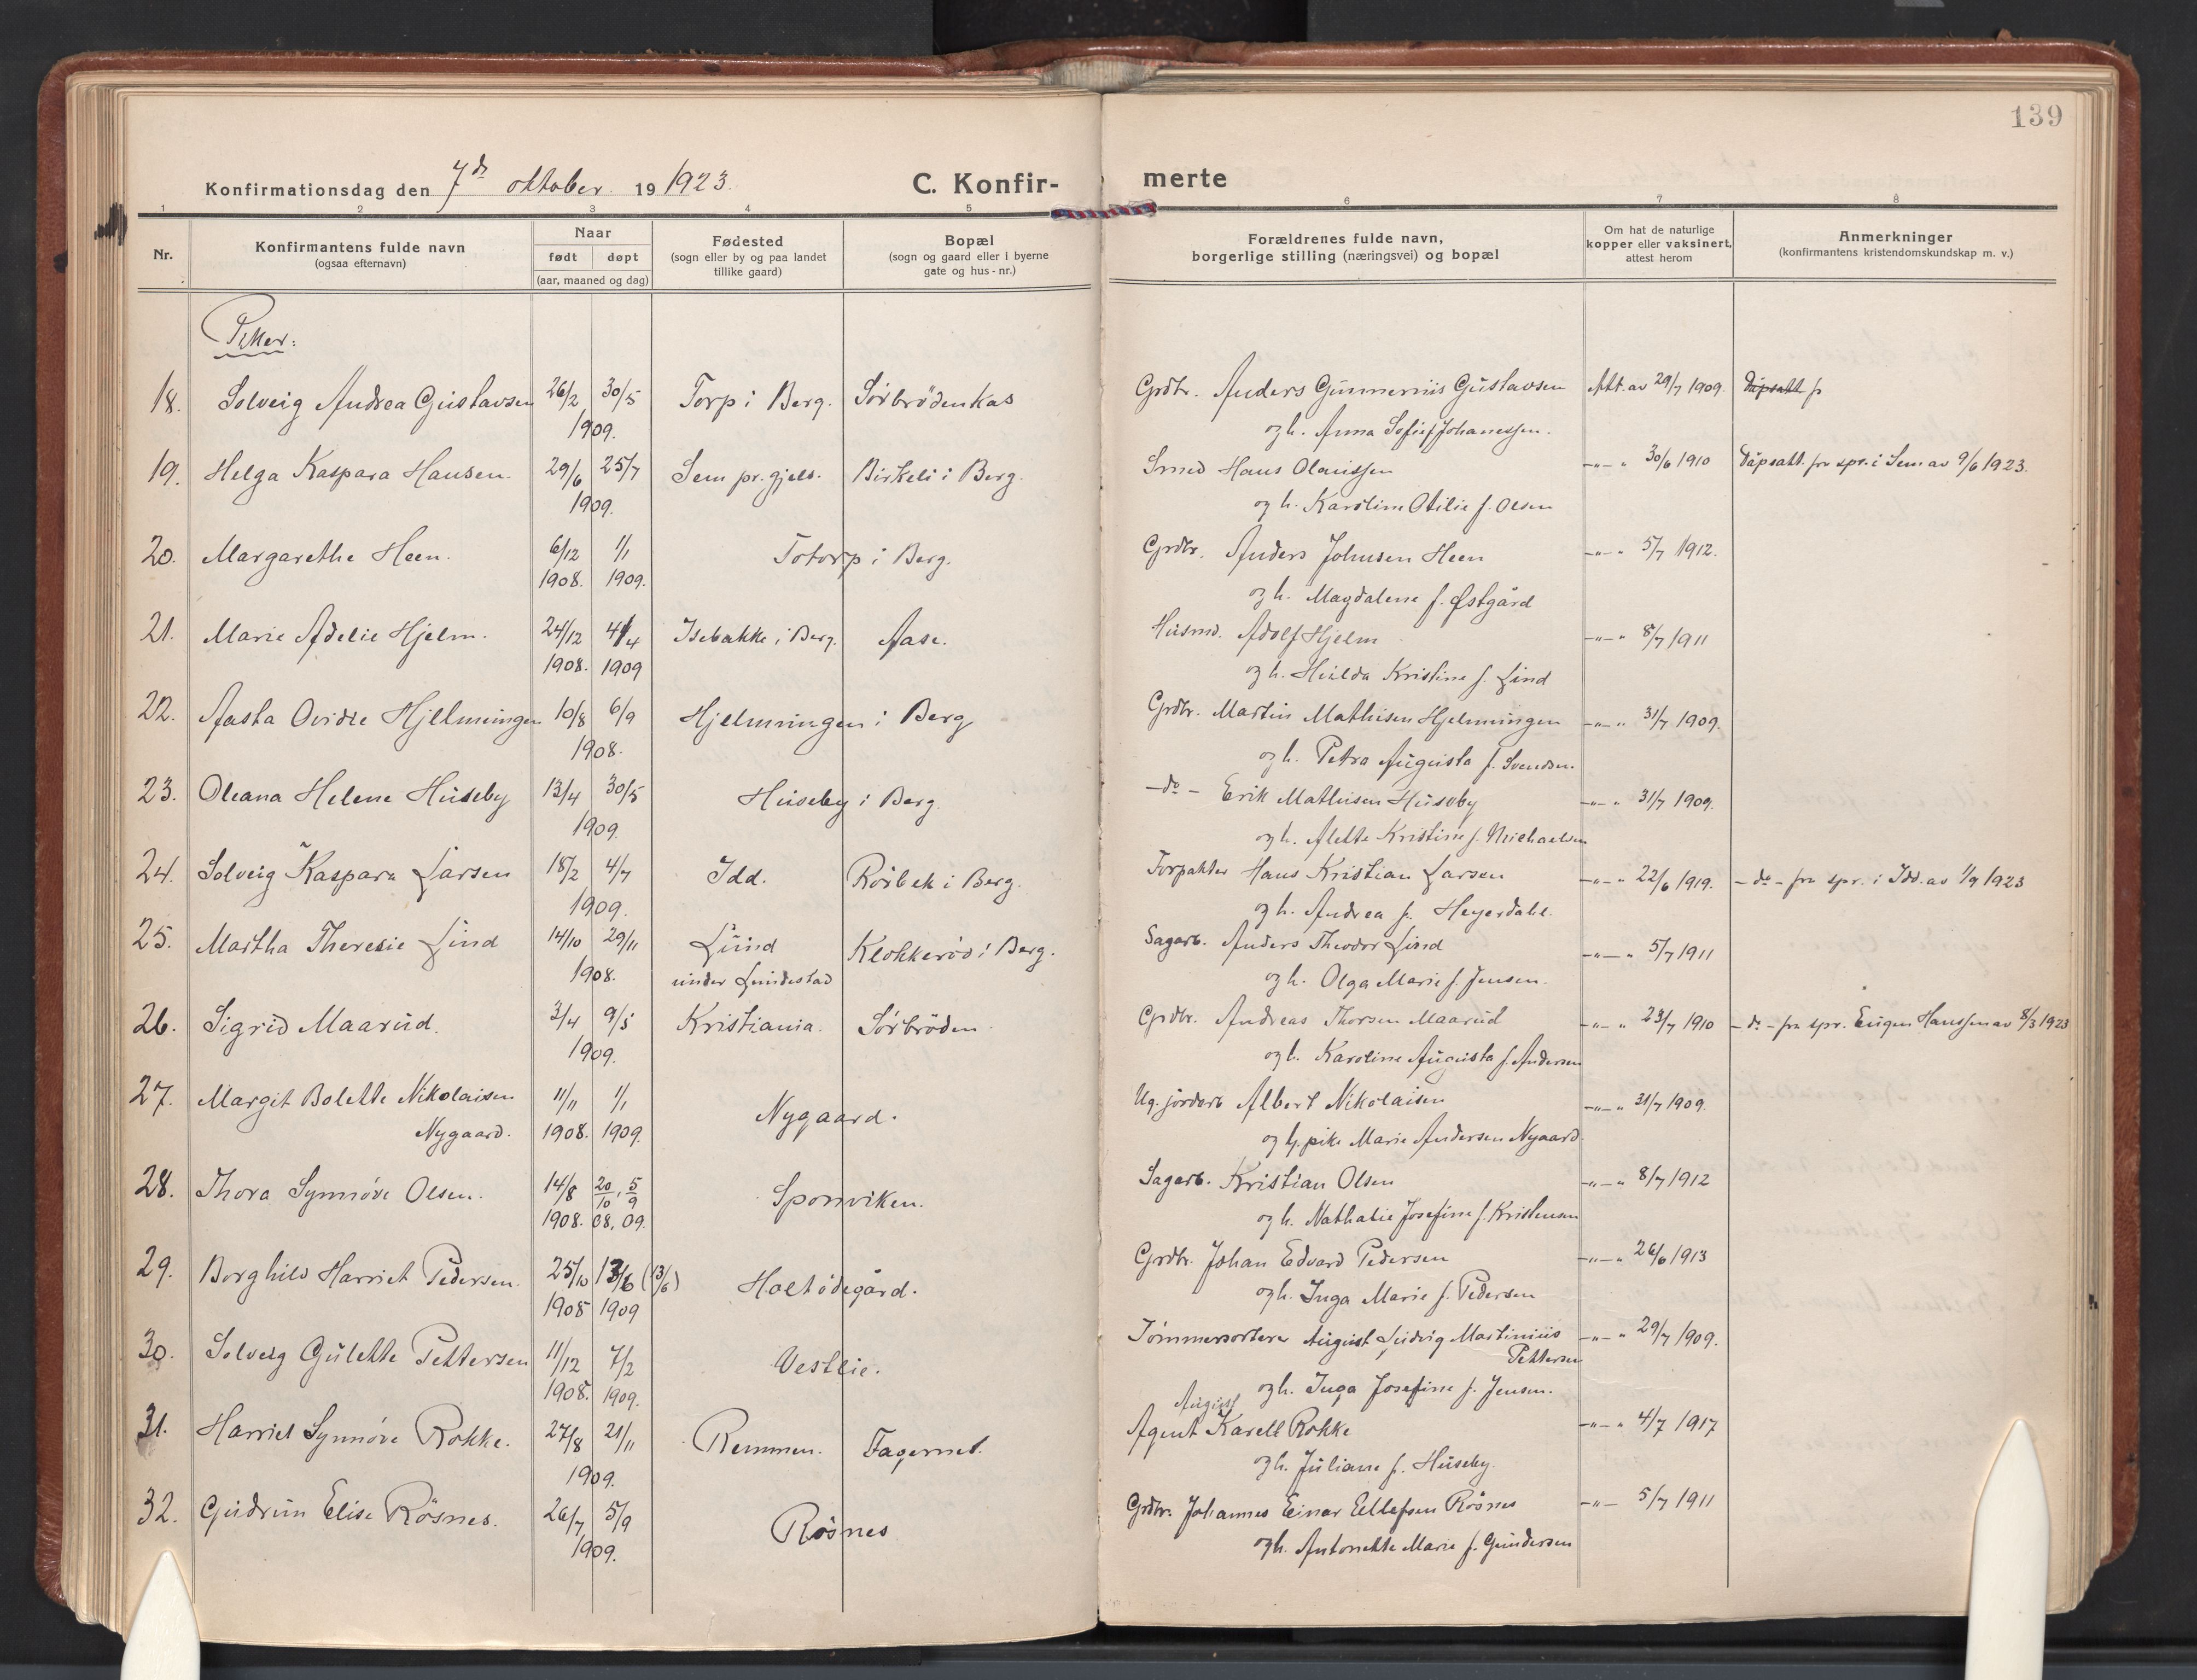 139
Konfirmationsdag den 7de oktober 19 1923. C. Konfir- merte
1 2 3 4 5 6 7 8
Nr. Konfirmantens fulde navn (ogsaa efternavn) Naar født døpt (aar, maaned og dag) Fødested (sogn eller by og paa landet tillike gaard) Bopæl (sogn og gaard eller i byerne gate og hus-nr.) Forældrenes fulde navn, borgerlige stilling (næringsvei) og bopæl Om hat de naturlige kopper eller vaksinert, attest herom Anmerkninger (konfirmantens kristendomskundskap m. v.)
Piker:
18. Solveig Andrea Gustavsen 26/2 30/5 Torp i Berg. Sørbrödenkas Grdbr. Anders Gunnerius Gustavsen Att. av 29/7 1909. Dåpsatt fr
1909. og h. Anna Sofie f. Johanessen.
19. Helga Kaspara Hansen. 29/6 25/7 Sem pr.gjeld. Birkeli i Berg. Smed Hans Olaussen -"-" 30/6 1910 Dåpsatt. fra spr. i Sem av 9/6 1923.
1909. og h. Karoline Otilie f. Olsen
20. Margarethe Heen. 6/12 1/1 Totorp i Berg. Grdbr. Anders Johnsen Heen -"-" 5/7 1912.
1908. 1909. og h. Magdalene f. Østgård
21. Marie Adelie Hjelm. 24/12 4/4 Isebakke i Berg. Aase. Husmd. Adolf Hjelm -"-" 8/7 1911
1908. 1909 og h. Hulda Kristine f. Lind
22. Aasta Ovidie Hjelmungen 10/8 6/9 Hjelmungen i Berg Grdbr. Martin Mathisen Hjelmungen -"-" 31/7 1909.
1908. og h. Petra Augusta f. Svendsen
23. Oleana Helene Huseby 13/4 30/5 Huseby i Berg. -do- Erik Mathisen Huseby -"-" 31/7 1909.
1909. og h. Alette Kristine f. Michaelsen
24. Solveig Kaspara Larsen 18/2 4/7 Idd. Rörbek i Berg. Forpakter Hans Kristian Larsen -"-" 22/6 1919. -do- fra spr. i Idd. av 1/9 1923
1909. og h. Andrea f. Heyerdahl.
25. Martha Theresie Lind 14/10 29/11 Lund Klokkerød i Berg. Sagarb. Anders Theodor Lind -"-" 5/7 1911
1908. under Lundestad og h. Olga Marie f. Jensen.
26. Sigrid Maarud. 3/4 9/5 Kristiania. Sørbröden Grdbr. Andreas Thorsen Maarud -"-" 23/7 1910 -do- fra spr. Eugen Hanssen av 8/3 1923
1909. og h. Karoline Augusta f. Andersen
27. Margit Bolette Nikolaisen 11/11 1/1 Nygaard. Ug. jordarb Albert Nikolaisen -"-" 31/7 1909.
Nygaard. 1908. 1909. og tj. pike Marie Andersen Nygaard.
28. Thora Synnöve Olsen. 14/8 20/10, 5/9 Sponviken. Sagarb. Kristian Olsen -"-" 8/7 1912
1908. 08, 09. og h. Nathalie Josefine f. Kristensen
29. Borghild Harriet Pedersen. 25/10 13/6 (13/6) Holtödegård. Grdbr. Johan Edvard Pedersen -"-" 26/6 1913
1908 1909 og h. Inga Marie f. Pedersen
30. Solveig Gulette Pettersen 11/12 7/2 Vestlie. Tömmersorterer August Ludvig Martinius -"-" 29/7 1909.
Pettersen
1908. 1909. og h. Inga Josefine f. Jensen.
August
31. Harriet Synnöve Rokke. 27/8 21/11 Remmen. Fagernet. Agent Karell Rokke -"-" 4/7 1917
1909. og h. Juliane f. Huseby.
32. Gudrun Elise Rösnes. 26/7 5/9 Rösnes Grdbr. Johannes Einar Ellefsen Rösnes -"- 5/7 1911
1909. og h. Antonette Marie f. Gundersen